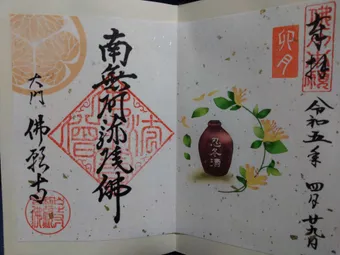 奉拝
令和五年 四月 廿九日
卯月
忍冬酒
南無阿弥陀佛
大門 佛願寺